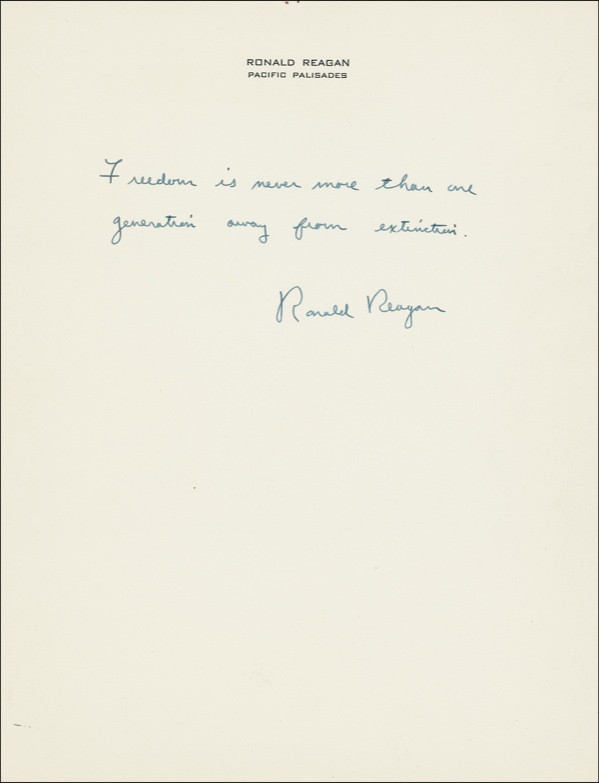 RONALD REAGAN
PACIFIC PALISADES
Freedom is never more than one
generation away from extinction.
Ronald Reagan